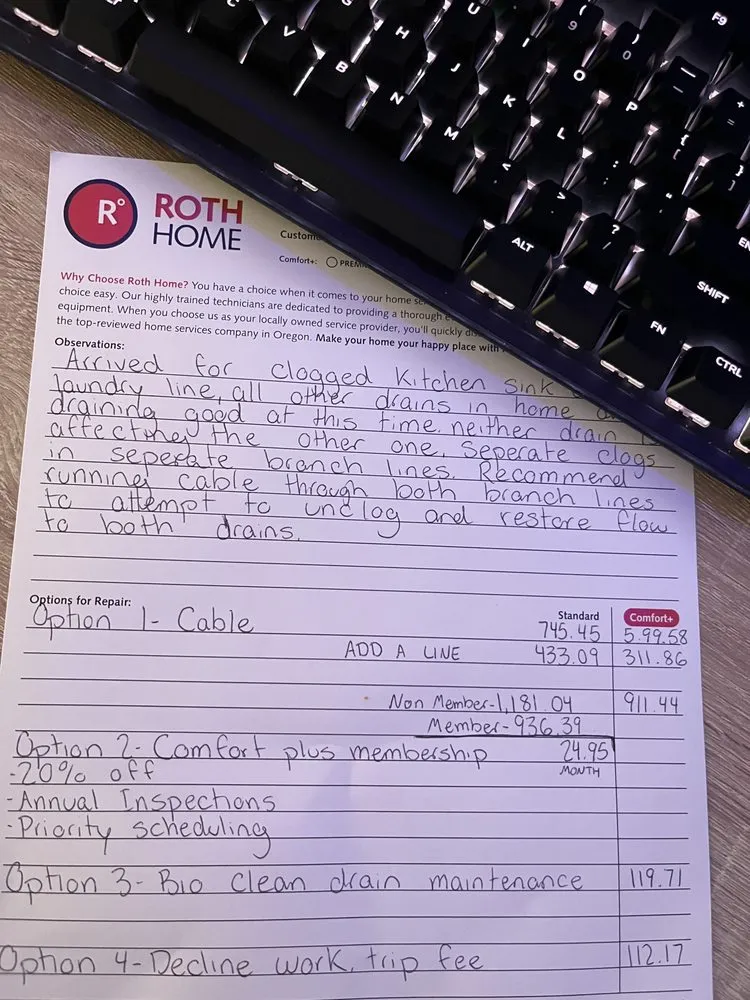 F9
U
(
9
)
0
C
V
B
H
N
J
M
I
K
O
L
P
—
+
=
{
[
}
]
<
>
:
;
"
?
/
ALT
FN
SHIFT
CTRL
R°
ROTH
HOME
Custom
Comfort+: PREM
Why Choose Roth Home? You have a choice when it comes to your home se
choice easy. Our highly trained technicians are dedicated to providing a thorough e
equipment. When you choose us as your locally owned service provider, you'll quickly di
the top-reviewed home services company in Oregon. Make your home your happy place with
Observations:
Arrived for clogged Kitchen Sink
laundry line, all other drains in home
draining good at this time. neither drain is
affecting the other one. Seperate clogs
in seperate branch lines. Recommend
running cable through both branch lines
to attempt to unclog and restore flow
to both drains.
Options for Repair:
Standard Comfort+
Option 1- Cable 745.45 5.99.58
ADD A LINE 433.09 311.86
Non Member-1,181.04 911.44
Member-936.39
Option 2- Comfort plus membership 24.95
MONTH
-20% off
-Annual Inspections
-Priority scheduling
Option 3- Bio clean drain maintenance 119.71
Option 4- Decline work, trip fee 112.17